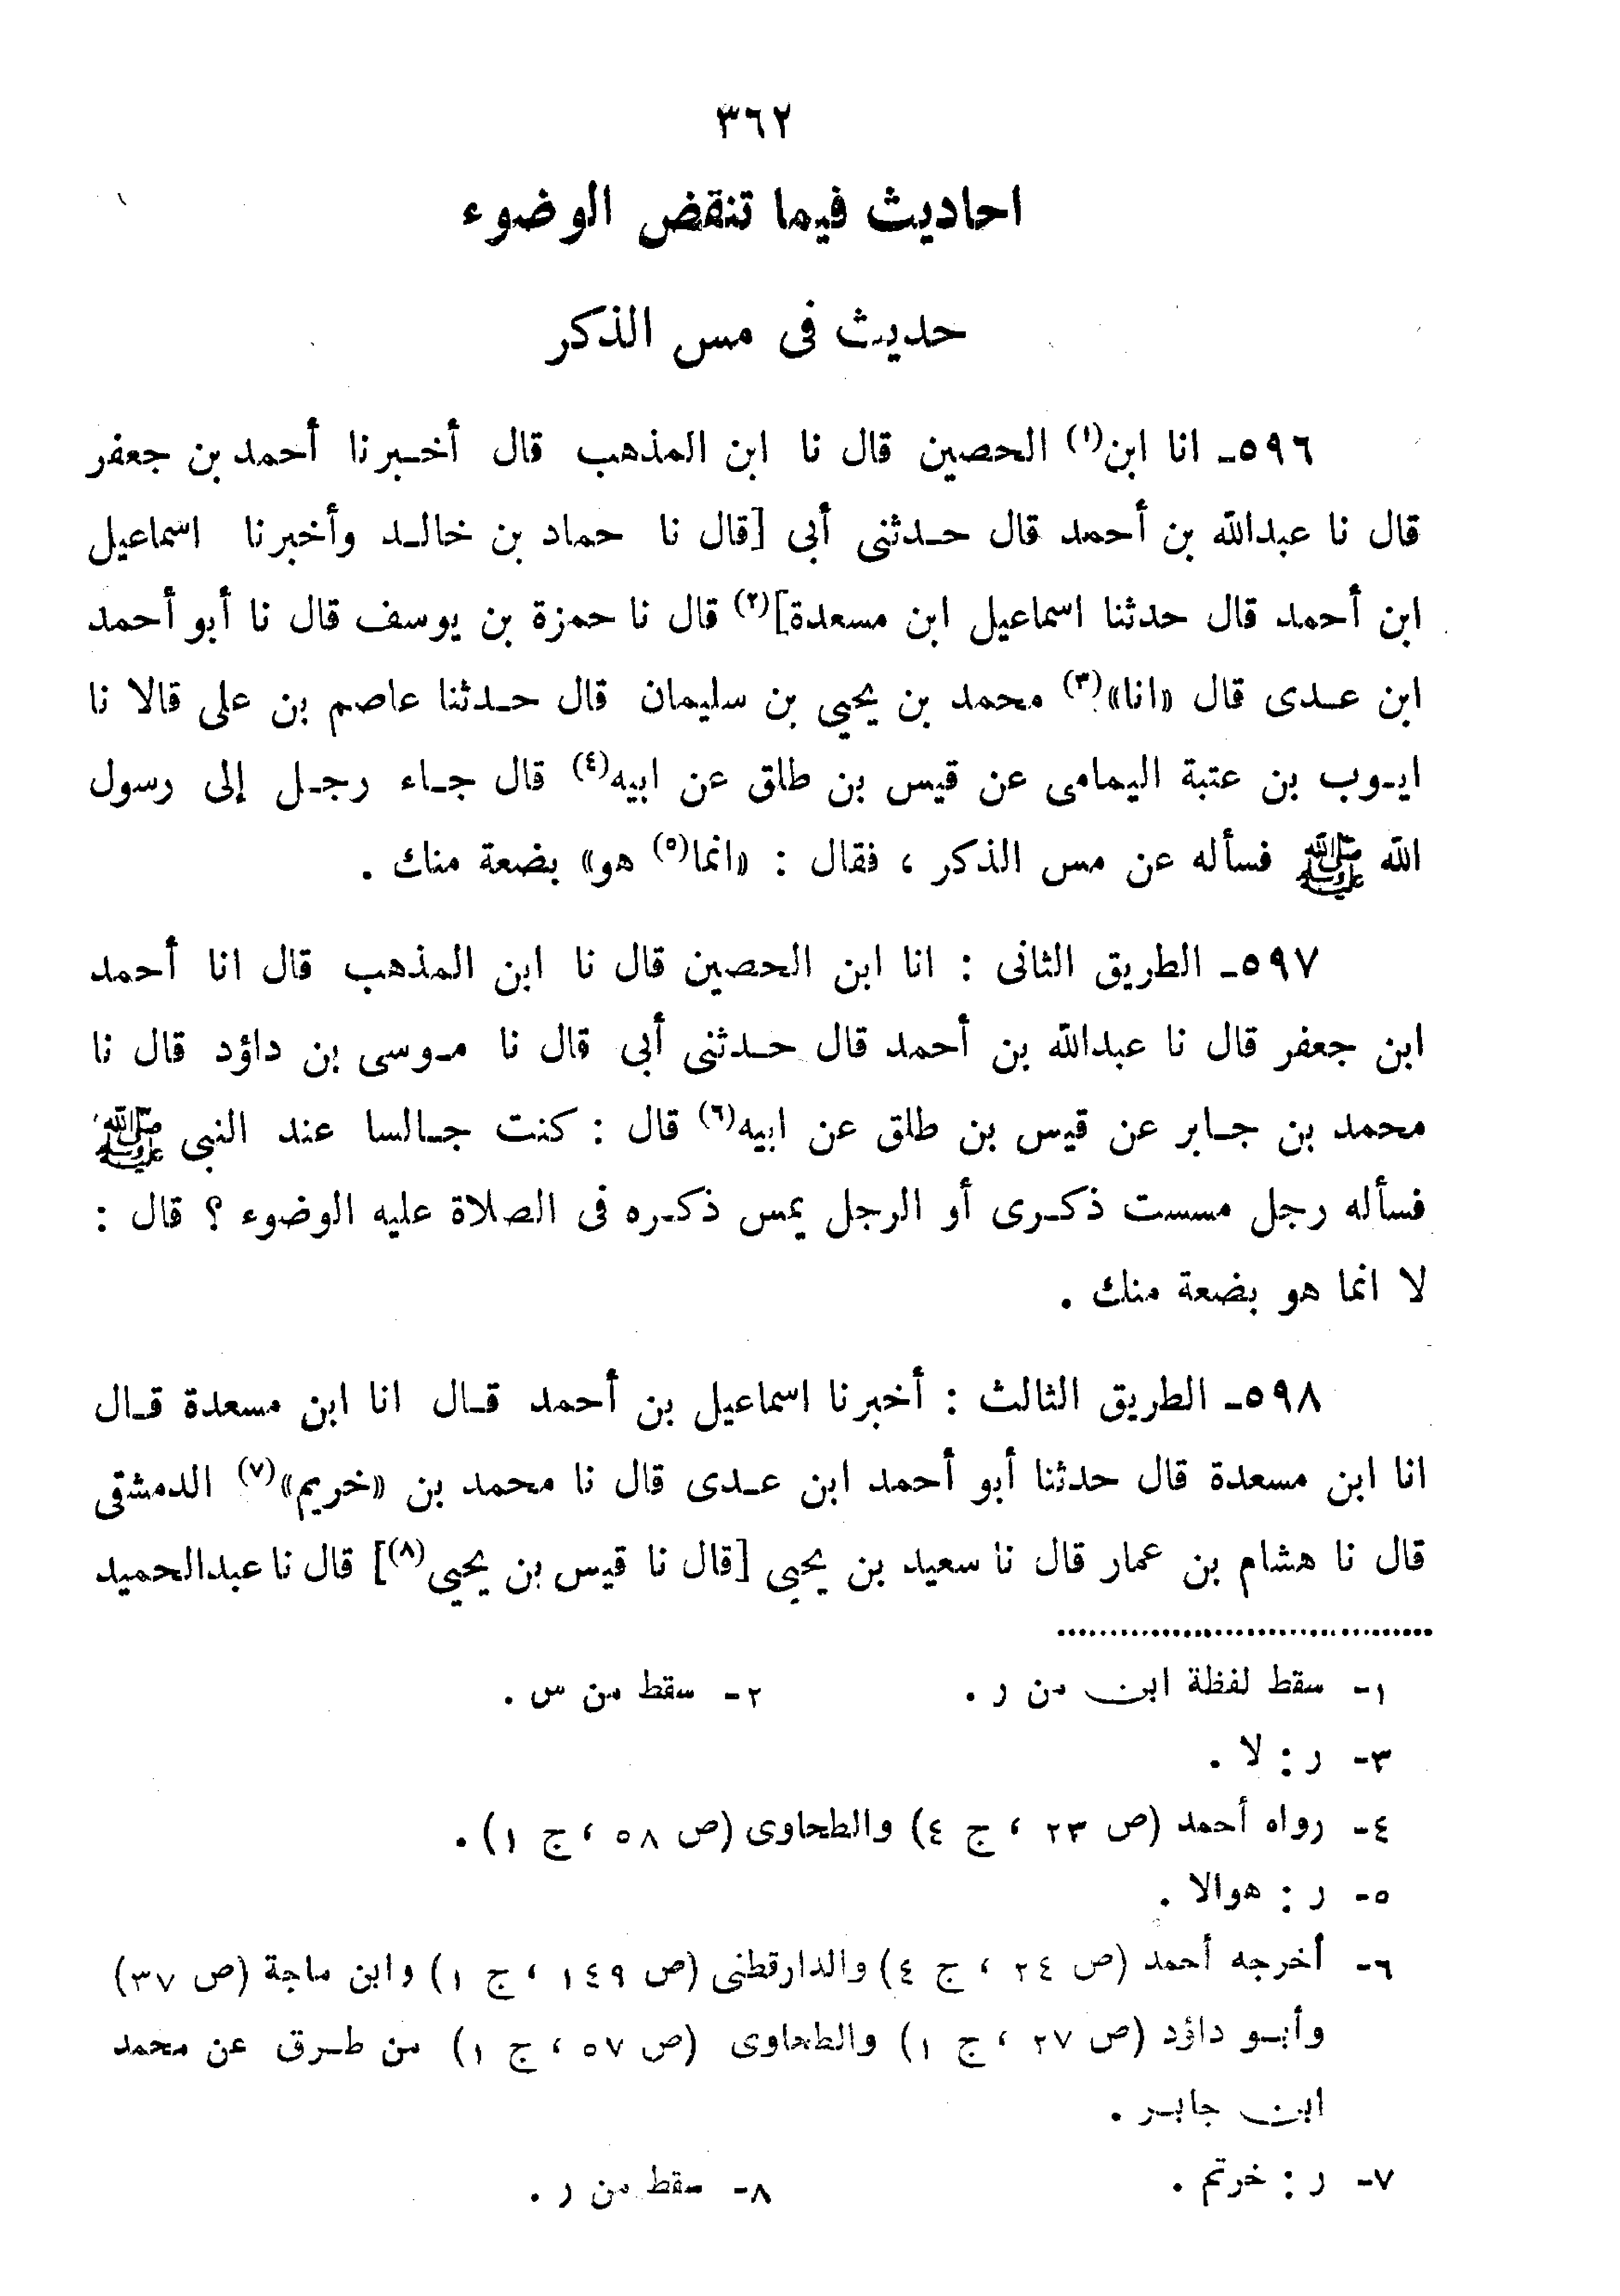 ٣٦٢
احاديث فيما تنقض الوضوء
حديث فى مس الذكر
٥٩٦ـ انا ابن(١) الحصين قال نا ابن المذهب قال أخبرنا أحمد بن جعفر
قال نا عبدالله بن أحمد قال حدثنى أبى [قال نا حماد بن خالد وأخبرنا اسماعيل
ابن أحمد قال حدثنا اسماعيل ابن مسعدة](٢) قال نا حمزة بن يوسف قال نا أبو أحمد
ابن عدى قال «انا»(٣) محمد بن يحيى بن سليمان قال حدثنا عاصم بن على قالا نا
ايوب بن عتبة اليمامى عن قيس بن طلق عن ابيه(٤) قال جاء رجل إلى رسول
الله ﷺ فسأله عن مس الذكر ، فقال : «انما(٥) هو» بضعة منك .
٥٩٧ـ الطريق الثانى : انا ابن الحصين قال نا ابن المذهب قال انا أحمد
ابن جعفر قال نا عبدالله بن أحمد قال حدثنى أبى قال نا موسى بن داؤد قال نا
محمد بن جابر عن قيس بن طلق عن ابيه(٦) قال : كنت جالسا عند النبى ﷺ
فسأله رجل مسست ذكرى أو الرجل يمس ذكره فى الصلاة عليه الوضوء ؟ قال :
لا انما هو بضعة منك .
٥٩٨ـ الطريق الثالث : أخبرنا اسماعيل بن أحمد قال انا ابن مسعدة قال
انا ابن مسعدة قال حدثنا أبو أحمد ابن عدى قال نا محمد بن «خريم»(٧) الدمشقى
قال نا هشام بن عمار قال نا سعيد بن يحيى [قال نا قيس بن يحيى(٨)] قال نا عبدالحميد
١- سقط لفظة ابن من ر . ٢- سقط من س .
٣- ر : لا .
٤- رواه أحمد (ص ٢٣ ، ج ٤) والطحاوى (ص ٥٨ ، ج ١) .
٥- ر : هوالا .
٦- أخرجه أحمد (ص ٢٤ ، ج ٤) والدارقطنى (ص ١٤٩ ، ج ١) وابن ماجة (ص ٣٧)
وأبو داؤد (ص ٢٧ ، ج ١) والطحاوى (ص ٥٧ ، ج ١) من طرق عن محمد
ابن جابر .
٧- ر : خرتم . ٨- سقط من ر .